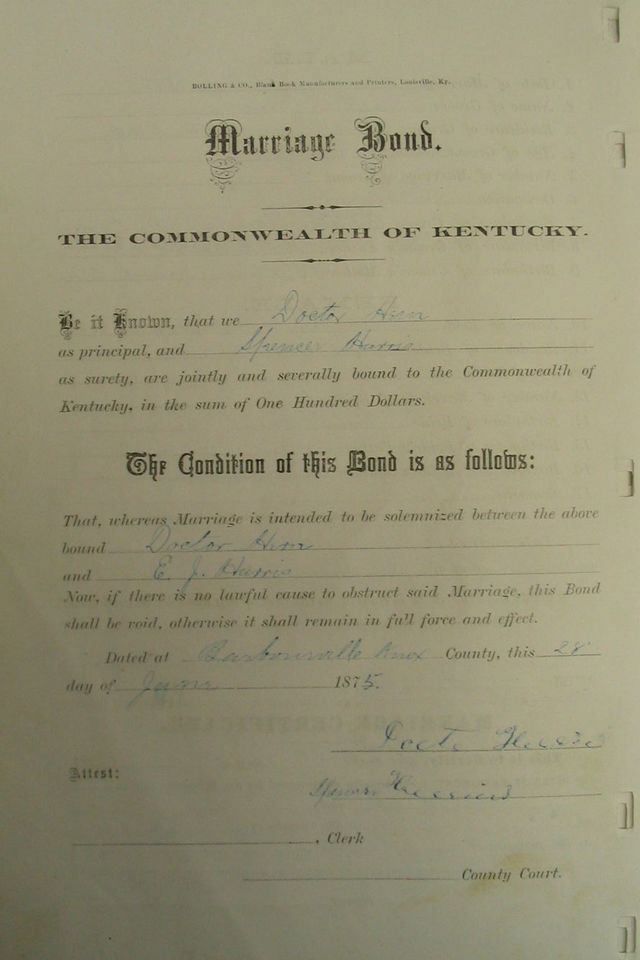 BOLLING & CO., Blank Book Manufacturers and Printers, Louisville, Ky.
Marriage Bond.
THE COMMONWEALTH OF KENTUCKY.
Be it Known, that we Doctor
as principal, and Spencer Harris
as surety, are jointly and severally bound to the Commonwealth of
Kentucky, in the sum of One Hundred Dollars.
The Condition of this Bond is as follows:
That, whereas Marriage is intended to be solemnized between the above
bound Doctor
and E. J. Harris
Now, if there is no lawful cause to obstruct said Marriage, this Bond
shall be void, otherwise it shall remain in full force and effect.
Dated at Barbourville Knox County, this 28
day of 1875.
Attest:
, Clerk
County Court.